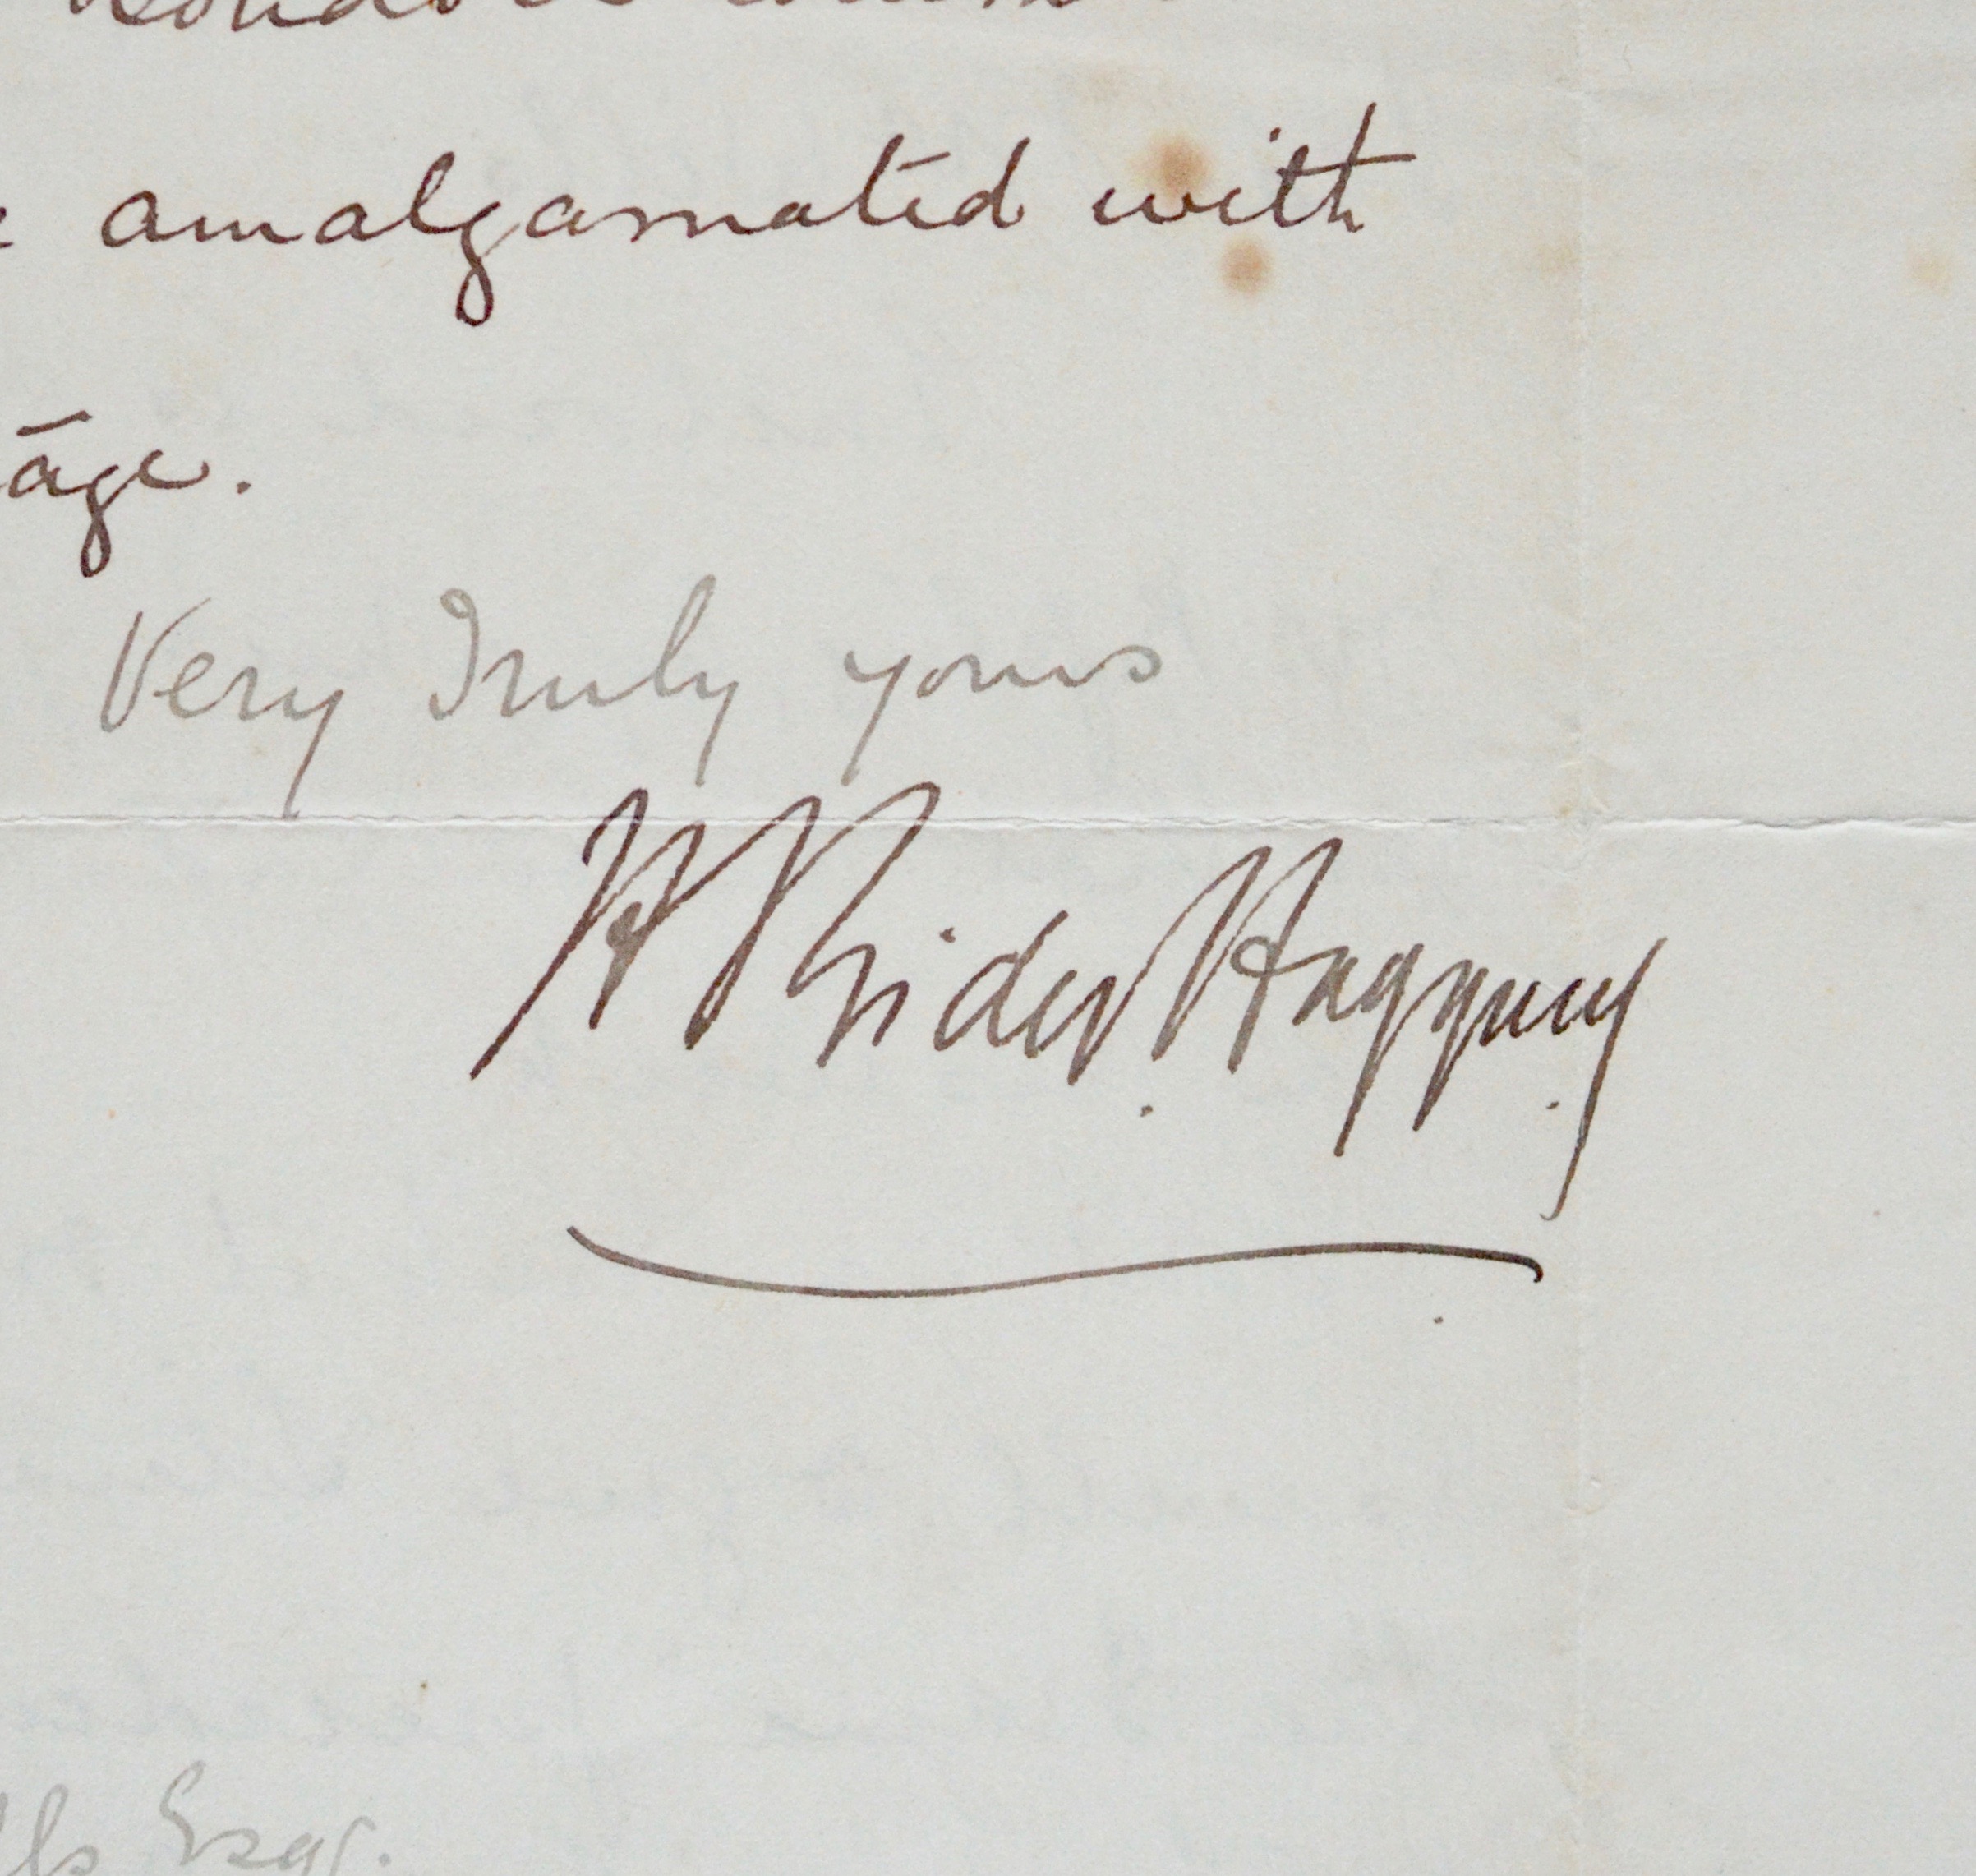 amalgamated with
age.
Very Truly yours
H Rider Haggard
Esqr.